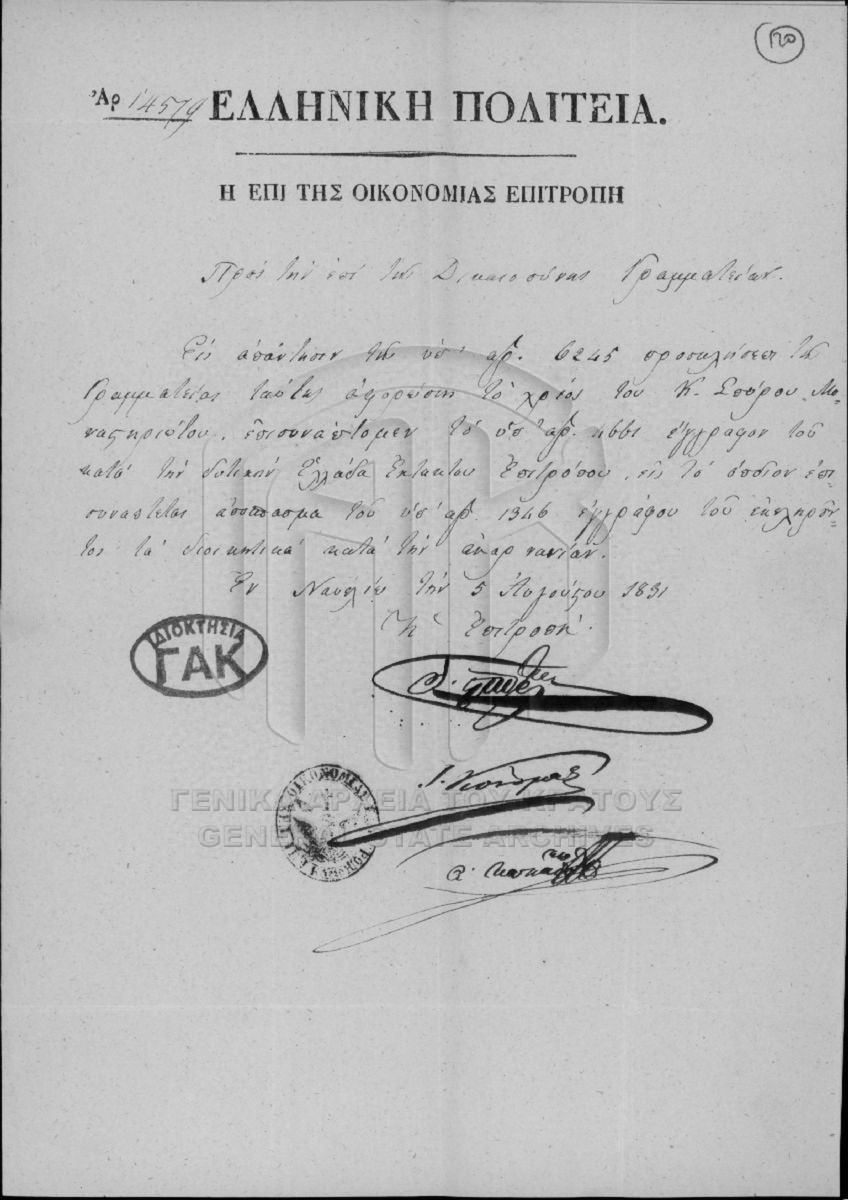 120
Ἀρ 14579 ΕΛΛΗΝΙΚΗ ΠΟΛΙΤΕΙΑ.
Η ΕΠΙ ΤΗΣ ΟΙΚΟΝΟΜΙΑΣ ΕΠΙΤΡΟΠΗ
Πρὸς τὴν ἐπὶ τῆς Δικαιοσύνης Γραμματείαν.
Εἰς ἀπάντησιν τῆς ὑπ' ἀρ. 6245 προσκλήσεως τῆς
Γραμματείας ταύτης ἀφορώσης τὸ χρέος τοῦ Κ. Σπύρου Μο-
ναστηριώτου, ἐπισυνάπτομεν τὸ ὑπ' ἀρ. 4661 ἔγγραφον τοῦ
κατὰ τὴν δυτικὴν Ἑλλάδα Ἐκτάκτου Ἐπιτρόπου, εἰς τὸ ὁποῖον ἐπι-
συνάπτεται ἀπόσπασμα τοῦ ὑπ' ἀρ. 1346 ἐγγράφου τοῦ ἐκπληροῦν-
τος τὰ διοικητικὰ κατὰ τὴν ἀκαρνανίαν.
Ἐν Ναυπλίῳ τὴν 5 Αὐγούστου 1831
Ἡ Ἐπιτροπὴ
ΙΔΙΟΚΤΗΣΙΑ
ΓΑΚ
ΓΕΝΙΚΑ ΑΡΧΕΙΑ ΤΟΥ ΚΡΑΤΟΥΣ
GENERAL STATE ARCHIVES